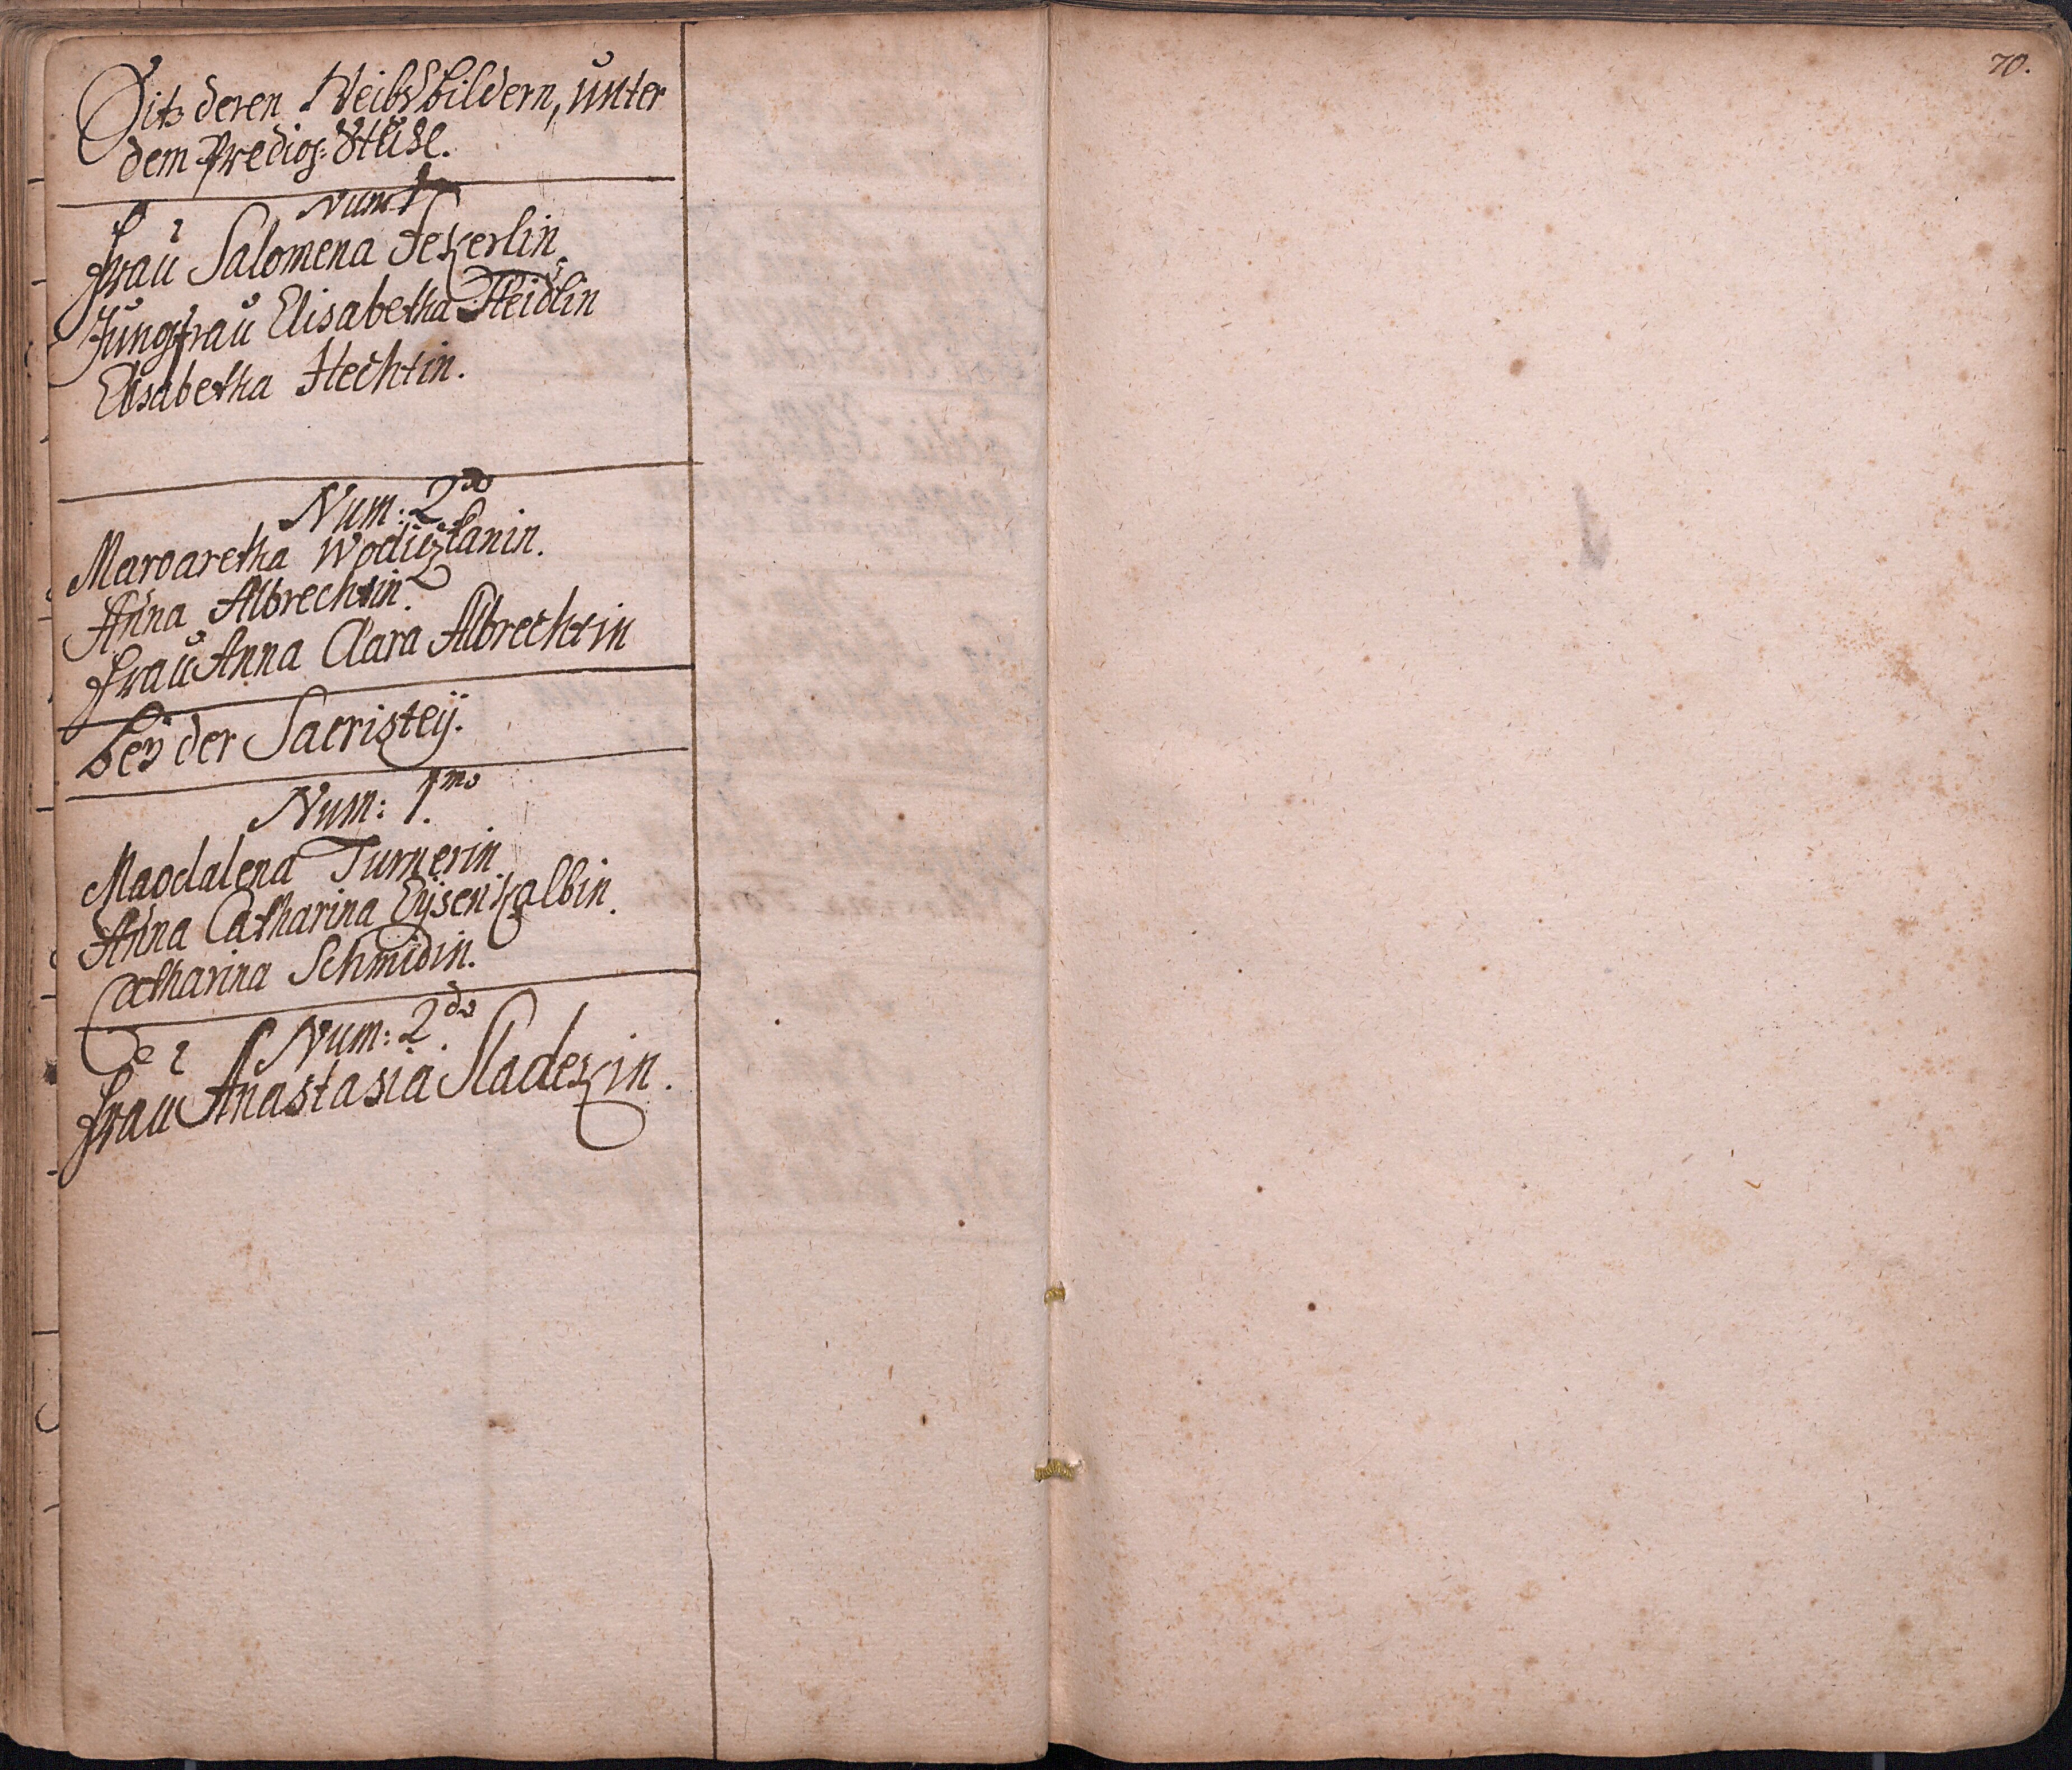 70.
Sitz deren Weibsbildern, unter
dem Predig: Stuhl.
Num 1
Frau Salomena Fekerlin
Jungfrau Elisabetha Heidlin
Elisabetha Hechtin.
Num: 2do
Margaretha
Anna Albrechtin.
Frau Anna Clara Albrechtin
bey der Sacristeÿ.
Num: 1mo
Magdalena Turnerin
Anna Catharina Eÿsenkalbin.
Catharina Schmidin.
Num: 2do
Frau Anastasia Sladekin.